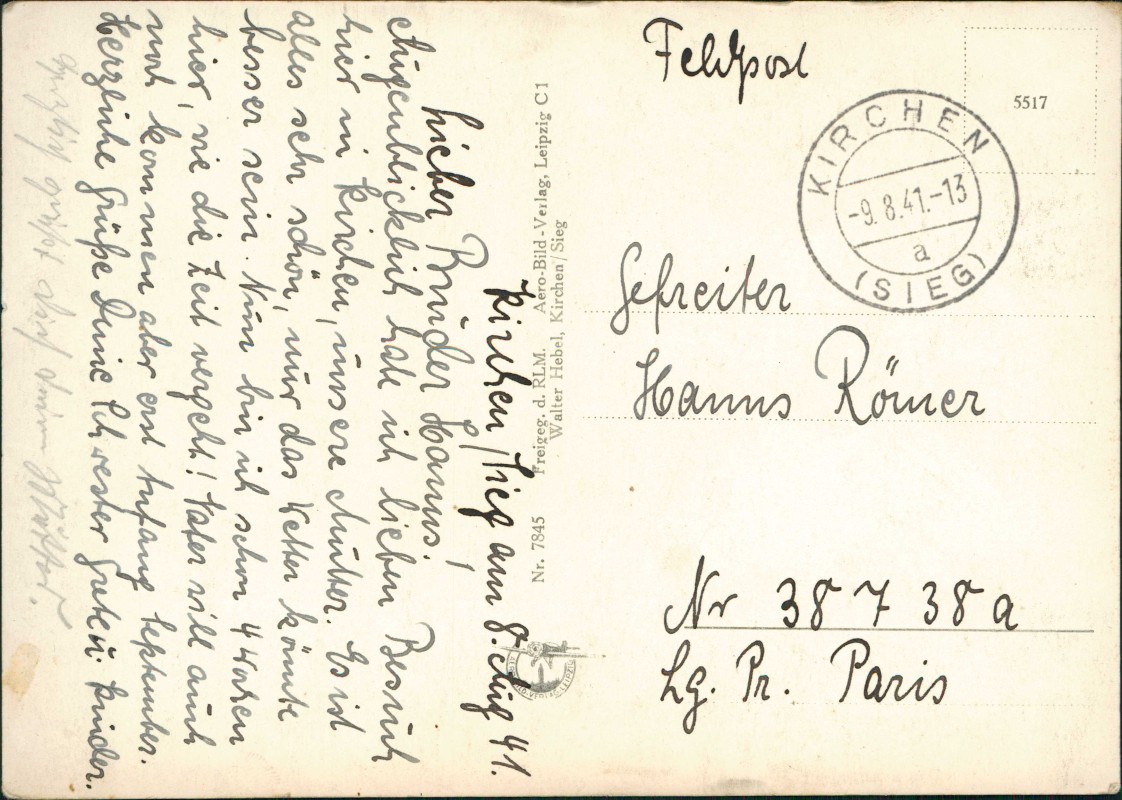 Kirchen/Sieg am 8. Aug 41.
Lieber Bruder Hanns!
Augenblicklich habe ich lieben Besuch
hier in Kirchen, unsere Mutter. Es ist
alles sehr schön, nur das Wetter könnte
besser sein. Nun bin ich schon 4 Wochen
hier, wie die Zeit vergeht! Vater will auch
noch kommen aber erst Anfang September.
Herzliche Grüße Deine Schwester Grete u. Kinder.
Herzlich grüßt dich deine Mutter.
Nr. 7845 Freigeg. d. RLM. Aero-Bild-Verlag, Leipzig C1
Walter Hebel, Kirchen/Sieg
Feldpost
5517
KIRCHEN
-9.8.41.-13
a
(SIEG)
Gefreiter
Hanns Römer
Nr 38 7 38 a
Lg. Pr. Paris